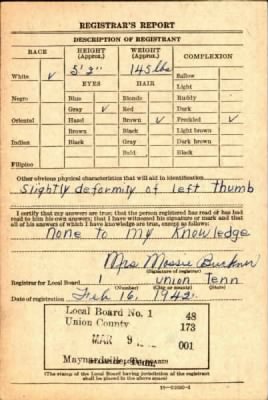 REGISTRAR'S REPORT
DESCRIPTION OF REGISTRANT
RACE HEIGHT (Approx.) WEIGHT (Approx.) COMPLEXION
5' 2" 145 lbs
White ✓ EYES HAIR Sallow
Light
Negro Blue Blonde Ruddy
Gray ✓ Red Dark
Oriental Hazel Brown ✓ Freckled ✓
Brown Black Light brown
Indian Black Gray Dark brown
Bald Black
Filipino
Other obvious physical characteristics that will aid in identification
Slightly deformity of left thumb
I certify that my answers are true; that the person registered has read or has had
read to him his own answers; that I have witnessed his signature or mark and that
all of his answers of which I have knowledge are true, except as follows:
None to my knowledge
Mrs Mossie Buckner
(Signature of registrar)
Registrar for Local Board 1 Union Tenn
(Number) (City or county) (State)
Date of registration Feb 16, 1942
Local Board No. 1 48
Union County 173
MAR 9 001
Maynardville, Tenn.
(The stamp of the Local Board having jurisdiction of the registrant
shall be placed in the above space)